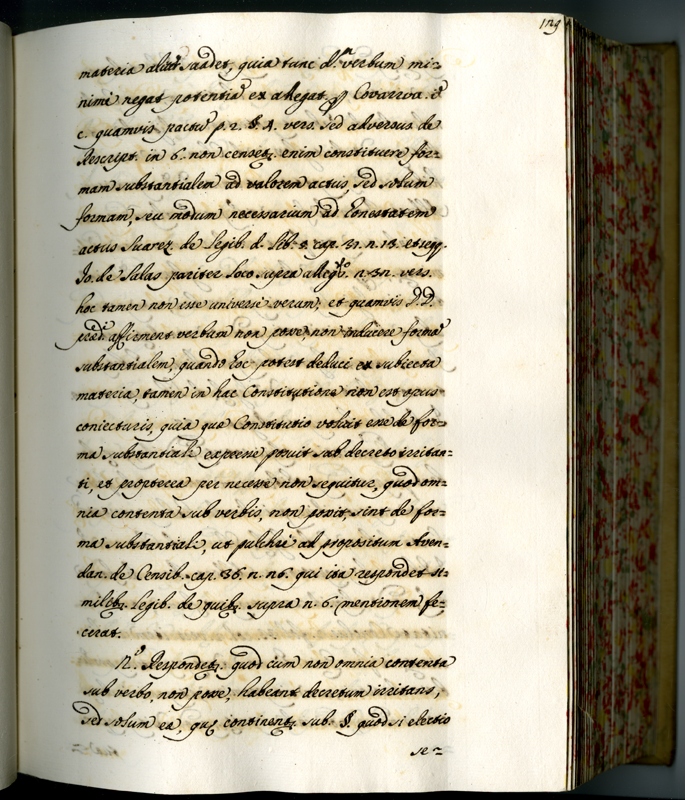 129
materia aliud suadet, quia tunc d.m verbum mi-
nimè negat potentiã ex allegat. Covarrua. in
c. quamvis pactũ p. 2. §. 4. vers. sed adversus de
Rescript. in 6. non censetr. enim constituere for-
mam substantialem ad valorem actus, sed solum
formam, seu modum necessarium ad honestatem
actus Suarez de legib. d. lib. 5. cap. 31. n. 13. et seqq.
Jo. de Salas pariter loco supra allegto. n. 32. vers.
hoc tamen non esse universè verum, et quamvis D.D.
prædi. affirment verbum non posse, non inducere formã
substantialem, quando hoc potest deduci ex subiecta
materia, tamen in hac Constitutione non est opus
coniecturis, quia quæ Constitutio voluit esse de for-
ma substantiali expressè posuit sub decreto irritan-
ti, et propterea per necesse non sequitur, quod om-
nia contenta sub verbis, non possit, sint de for-
ma substantiali, ut pulchrè ad propositum Aven-
dan. de Censib. cap. 36. n. 26. qui ita respondet si-
milibz. legib. de quibz. supra n. 6. mentionem fe-
cerat.
2.o Respondetr. quod cum non omnia contenta
sub verbo, non posse, habeant decretum irritans,
sed solum ea, quę continentr. sub. §. quod si electio
se-